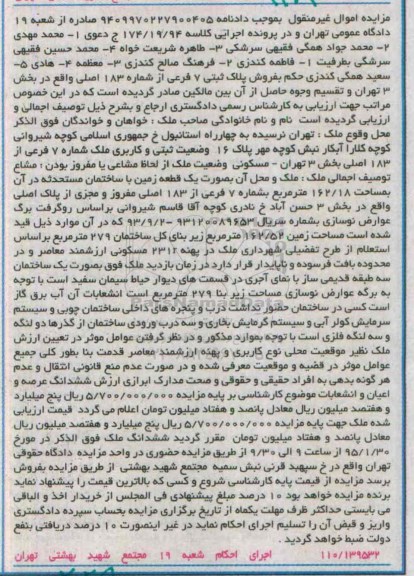 مزایده اموال غیرمنقول بموجب دادنامه ۹۴۰۹۹۷۰۲۲۷۹۰۰۴۰۵ صادره از شعبه ۱۹
دادگاه عمومی تهران و در پرونده اجرایی کلاسه ۱۷۴/۱۹/۹۴ ج دعوی ۱- محمد مهدی
۲- محمد جواد همگی فقیهی سرشکی ۳- طاهره شریعت خواه ۴- محمد حسین فقیهی
سرشکی بطرفیت ۱- فاطمه کندزی ۲- فرهنگ صالح کندزی ۳- معظمه ۴- هادی ۵-
سعید همگی کندزی حکم بفروش پلاک ثبتی ۷ فرعی از شماره ۱۸۳ اصلی واقع در بخش
۳ تهران و تقسیم وجوه حاصل از آن بین مالکین صادر گردیده است که در این خصوص
مراتب جهت ارزیابی به کارشناس رسمی دادگستری ارجاع و بشرح ذیل توصیف اجمالی و
ارزیابی گردیده است نام و نام خانوادگی صاحب ملک : خواهان و خواندگان فوق الذکر
محل وقوع ملک : تهران نرسیده به چهارراه استانبول خ جمهوری اسلامی کوچه شیروانی
کوچه کلارا آبکار نبش کوچه مهر پلاک ۱۶ وضعیت ثبتی و کاربری ملک شماره ۷ فرعی از
۱۸۳ اصلی بخش ۳ تهران - مسکونی وضعیت ملک از لحاظ مشاعی یا مفروز بودن : مشاع
توصیف اجمالی ملک : ملک و محل آن بصورت یک قطعه زمین با ساختمان مستحدثه در آن
بمساحت ۱۶۲/۱۸ مترمربع بشماره ۷ فرعی از ۱۸۳ اصلی مفروز و مجزی از پلاک اصلی
واقع در بخش ۳ حسن آباد خ نادری کوچه آقا قاسم شیروانی براساس روگرفت برگ
عوارض نوسازی بشماره سریال ۹۳۱۲۰۰۸۹۶۵۳ -۹۳/۹/۲ که در آن موارد ذیل قید
شده است مساحت زمین ۱۶۲/۵۲ مترمربع زیر بنای کل ساختمان ۲۷۹ مترمربع براساس
استعلام از طرح تفضیلی شهرداری ملک در پهنه ۲۳۱۲ مسکونی ارزشمند معاصر و در
محدوده بافت فرسوده و ناپایدار قرار دارد در زمان بازدید ملک فوق بصورت یک ساختمان
سه طبقه قدیمی ساز با نمای آجری در قسمت های دیوار حیاط سیمان سفید است با توجه
به برگه عوارض نوسازی مساحت زیر بنا ۲۷۹ مترمربع است انشعابات آن آب برق گاز
است کسی در ساختمان حضور نداشت درب و پنجره های داخلی ساختمان چوبی و سیستم
سرمایش کولر آبی و سیستم گرمایش بخاری و سه درب ورودی ساختمان از گذرها دو لنگه
و سه لنگه فلزی است با توجه بموارد مذکور و در نظر گرفتن عوامل موثر در تعیین ارزش
ملک نظیر موقعیت محلی نوع کاربری و پهنه ارزشمند معاصر قدمت بنا بطور کلی جمیع
عوامل موثر در قضیه و موقعیت معرفی شده و در صورت عدم منع قانونی انتقال و عدم
هر گونه بدهی به افراد حقیقی و حقوقی و صحت مدارک ابرازی ارزش ششدانگ عرصه و
اعیان و انشعابات موضوع کارشناسی بر پایه مزایده ۵/۷۰۰/۰۰۰/۰۰۰ ریال پنج میلیارد
و هفتصد میلیون ریال معادل پانصد و هفتاد میلیون تومان اعلام می گردد قیمت ارزیابی
شده ملک جهت پایه مزایده ۵/۷۰۰/۰۰۰/۰۰۰ ریال پنج میلیارد و هفتصد میلیون ریال
معادل پانصد و هفتاد میلیون تومان مقرر گردید ششدانگ ملک فوق الذکر در مورخ
۹۵/۱/۳۰ از ساعت ۹ الی ۹/۳۰ از طریق مزایده حضوری در واحد مزایده دادگاه حقوقی
تهران واقع در خ سپهبد قرنی نبش سمیه مجتمع شهید بهشتی از طریق مزایده بفروش
برسد مزایده از قیمت پایه کارشناسی شروع و کسی که بالاترین قیمت را پیشنهاد نماید
برنده مزایده خواهد بود ۱۰ درصد مبلغ پیشنهادی فی المجلس از خریدار اخذ و الباقی
می بایستی حداکثر ظرف مهلت یکماه از تاریخ برگزاری مزایده بحساب سپرده دادگستری
واریز و قبض آن را تسلیم اجرای احکام نماید در غیر اینصورت ۱۰ درصد دریافتی بنفع
دولت ضبط خواهد گردید .
۱۱۰/۱۳۹۵۳۲ اجرای احکام شعبه ۱۹ مجتمع شهید بهشتی تهران